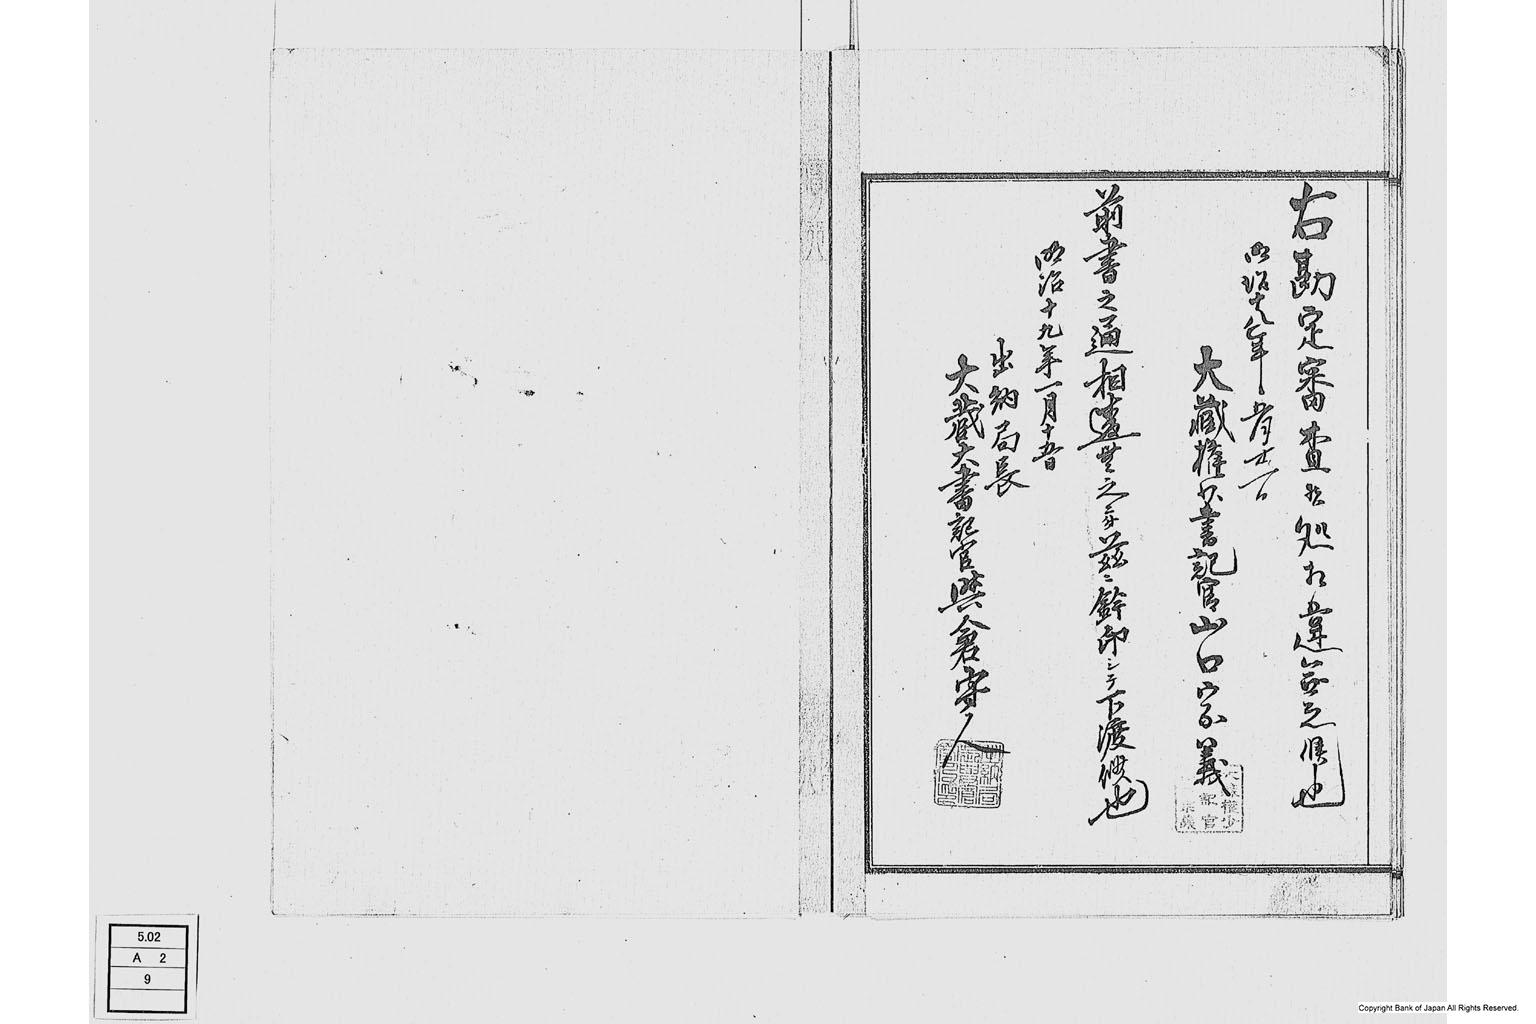 右勘定審査候処相違無之候也
明治十八年
大蔵権少書記官山口宗義
前書之通相違無之ニ付茲ニ鈐印シテ下渡候也
明治十九年一月十五日
出納局長
大蔵大書記官與倉守人
5.02
A 2
9
Copyright Bank of Japan All Rights Reserved.